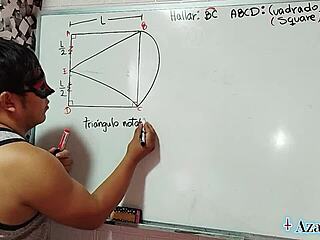 Hallar: BC ABCD: Cuadrado
(Square)
L
A B
L/2
E
L/2
D C
triángulo notab
+ Aza